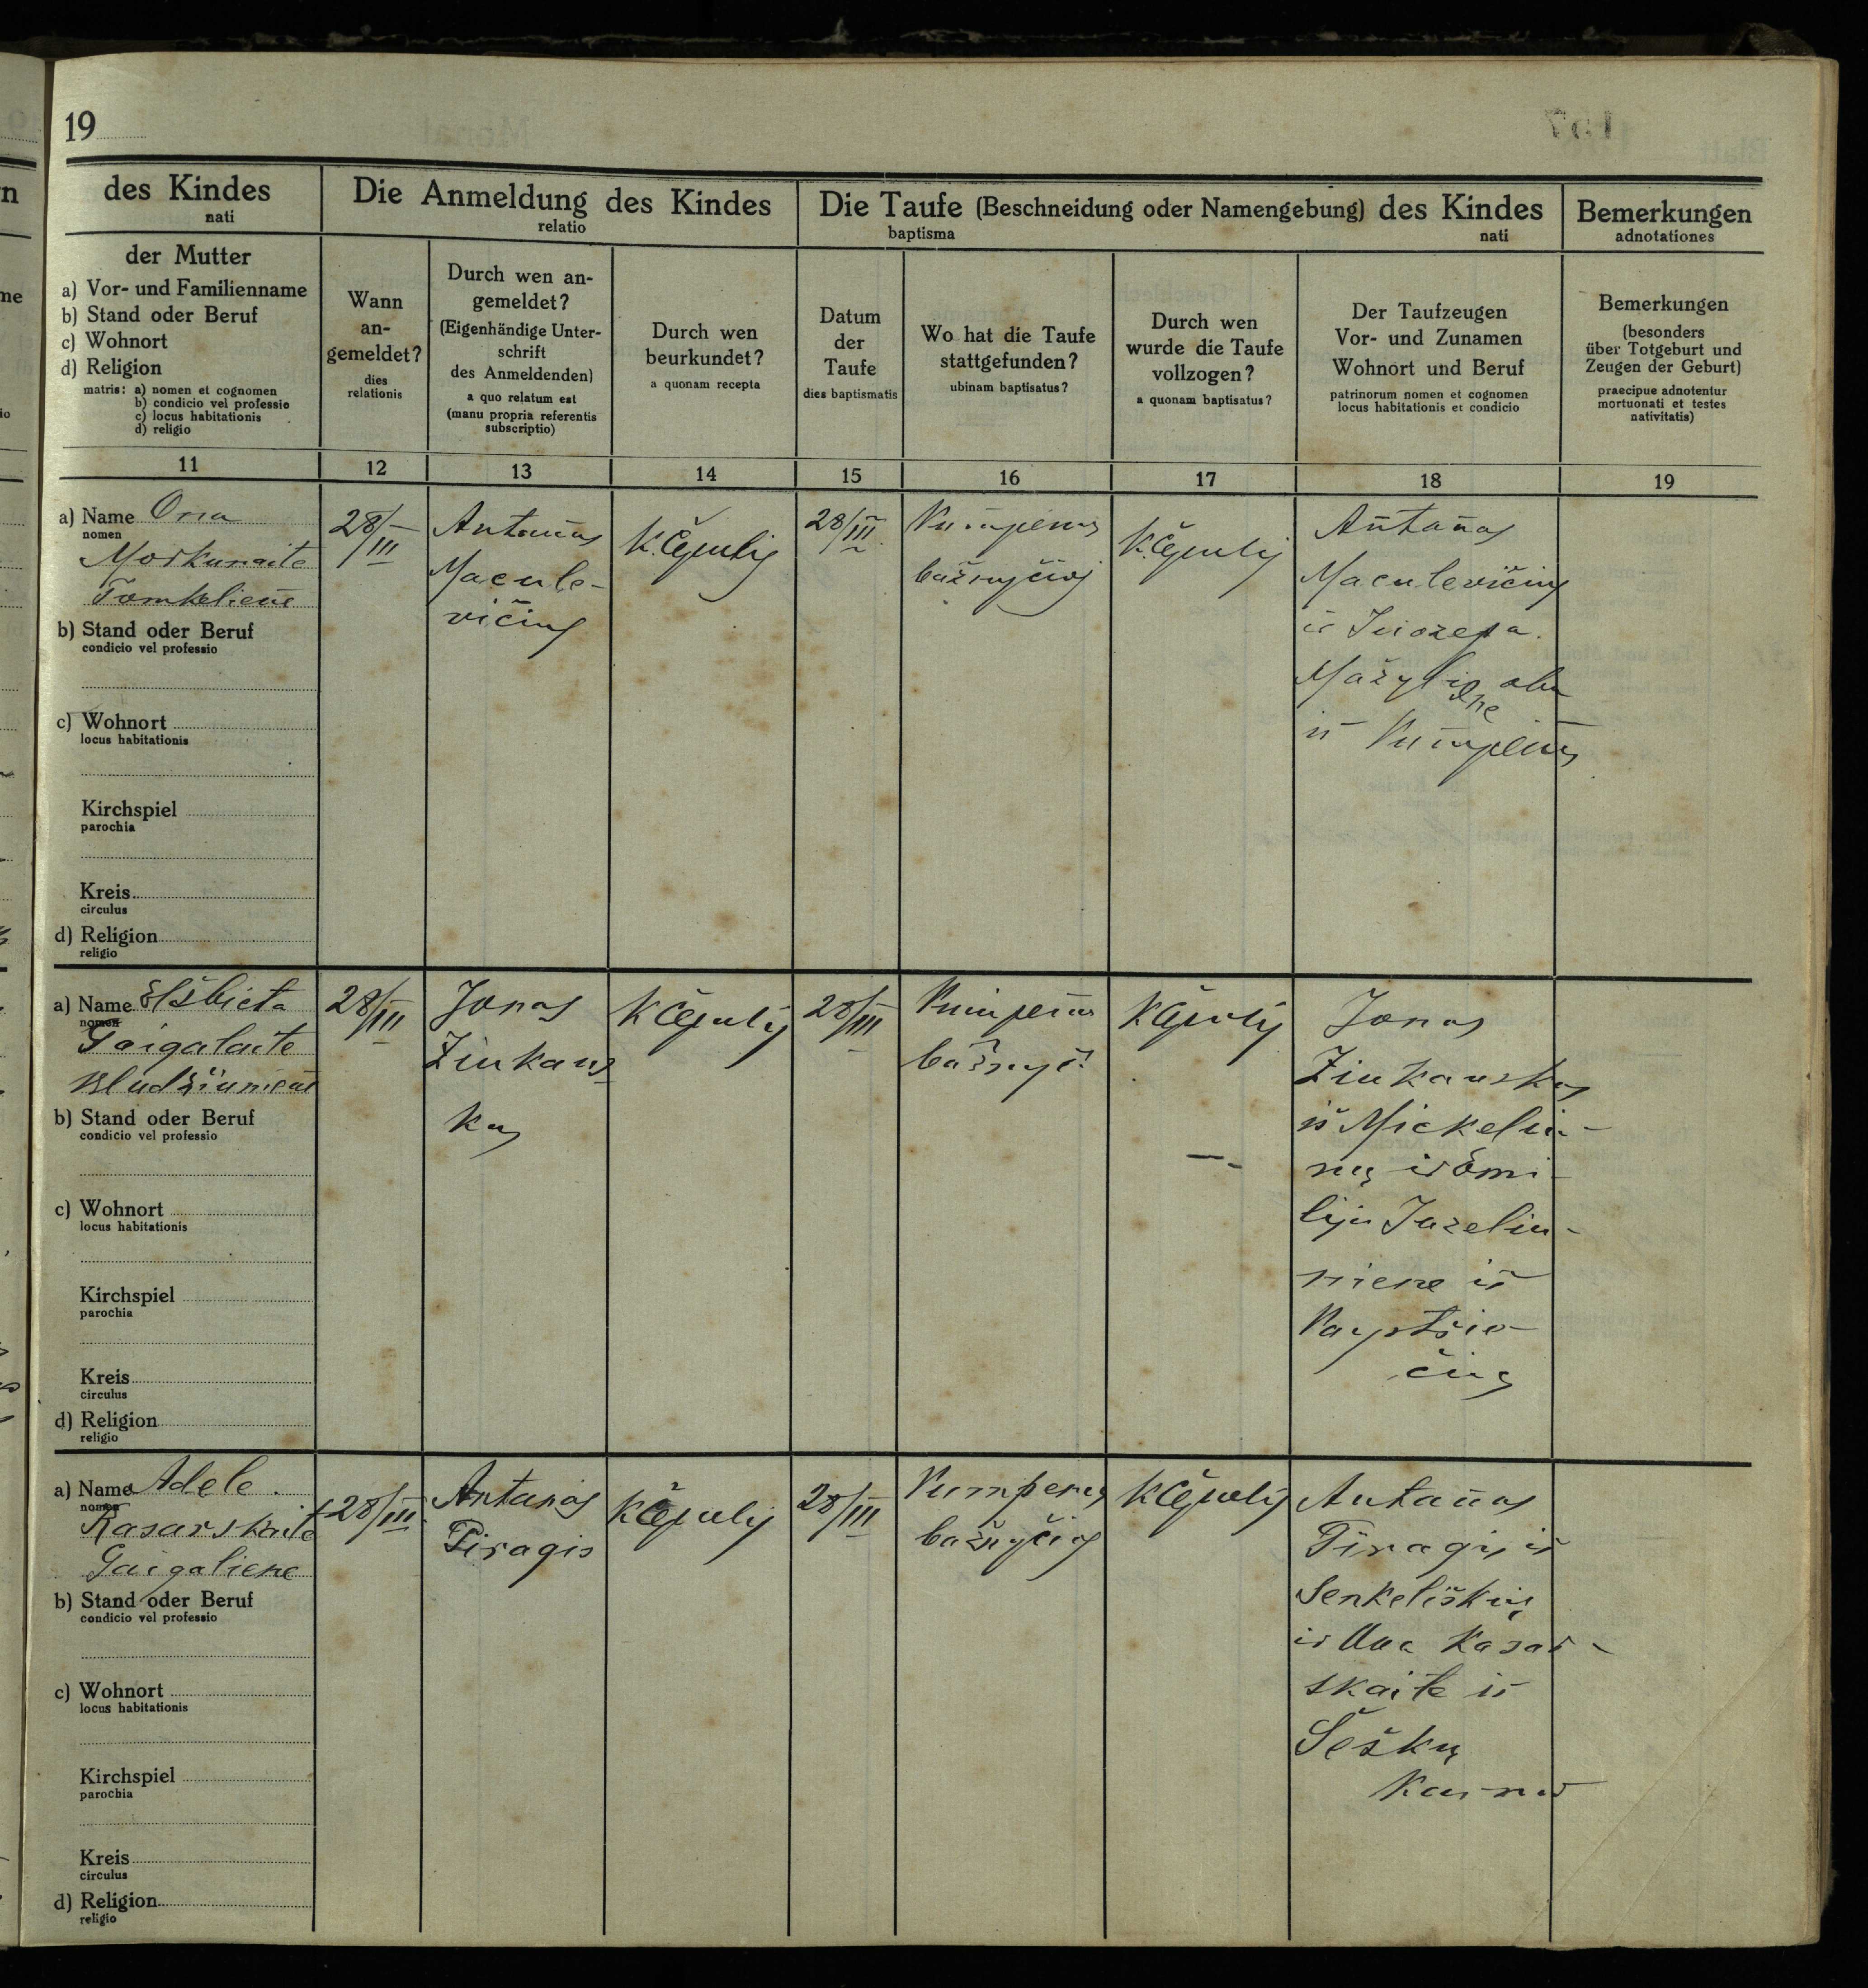 19
des Kindes
nati
Die Anmeldung des Kindes
relatio
Die Taufe (Beschneidung oder Namengebung) des Kindes
baptisma nati
Bemerkungen
adnotationes
der Mutter
a) Vor- und Familienname
b) Stand oder Beruf
c) Wohnort
d) Religion
matris: a) nomen et cognomen
b) condicio vel professio
c) locus habitationis
d) religio
Wann
an-
gemeldet?
dies
relationis
Durch wen an-
gemeldet?
(Eigenhändige Unter-
schrift
des Anmeldenden)
a quo relatum est
(manu propria referentis
subscriptio)
Durch wen
beurkundet?
a quonam recepta
Datum
der
Taufe
dies baptismatis
Wo hat die Taufe
stattgefunden?
ubinam baptisatus?
Durch wen
wurde die Taufe
vollzogen?
a quonam baptisatus?
Der Taufzeugen
Vor- und Zunamen
Wohnort und Beruf
patrinorum nomen et cognomen
locus habitationis et condicio
Bemerkungen
(besonders
über Totgeburt und
Zeugen der Geburt)
praecipue adnotentur
mortuonati et testes
nativitatis)
11 12 13 14 15 16 17 18 19
a) Name Ona
nomen
Morkunaite
Tomkeliene
b) Stand oder Beruf
condicio vel professio
c) Wohnort
locus habitationis
Kirchspiel
parochia
Kreis
circulus
d) Religion
religio
28/III
Antanas
Macule-
vičius
28/III
Pumpenų
bažnyčioj
Antanas
Maculevičius
ir Juozepa
Mažylienė abu
iš Pumpėnų
a) Name Elžbieta
nomen
Gaigalaite
b) Stand oder Beruf
condicio vel professio
c) Wohnort
locus habitationis
Kirchspiel
parochia
Kreis
circulus
d) Religion
religio
28/III
Jonas
Zinkaus
kas
28/III
Pumpėnų
bažnyč.
Jonas
Zinkauskas
iš Mickeliu-
nų ir Emi-
lija Juzeliu-
niene iš
a) Name Adele
nomen
Kasarskaitė
Gaigaliene
b) Stand oder Beruf
condicio vel professio
c) Wohnort
locus habitationis
Kirchspiel
parochia
Kreis
circulus
d) Religion
religio
28/III
Antanas
Piragis
28/III
Pumpenų
bažnyčioj
Antanas
Piragis iš
Senkeliškių
ir Ona Kasar-
skaite iš
Šeškų